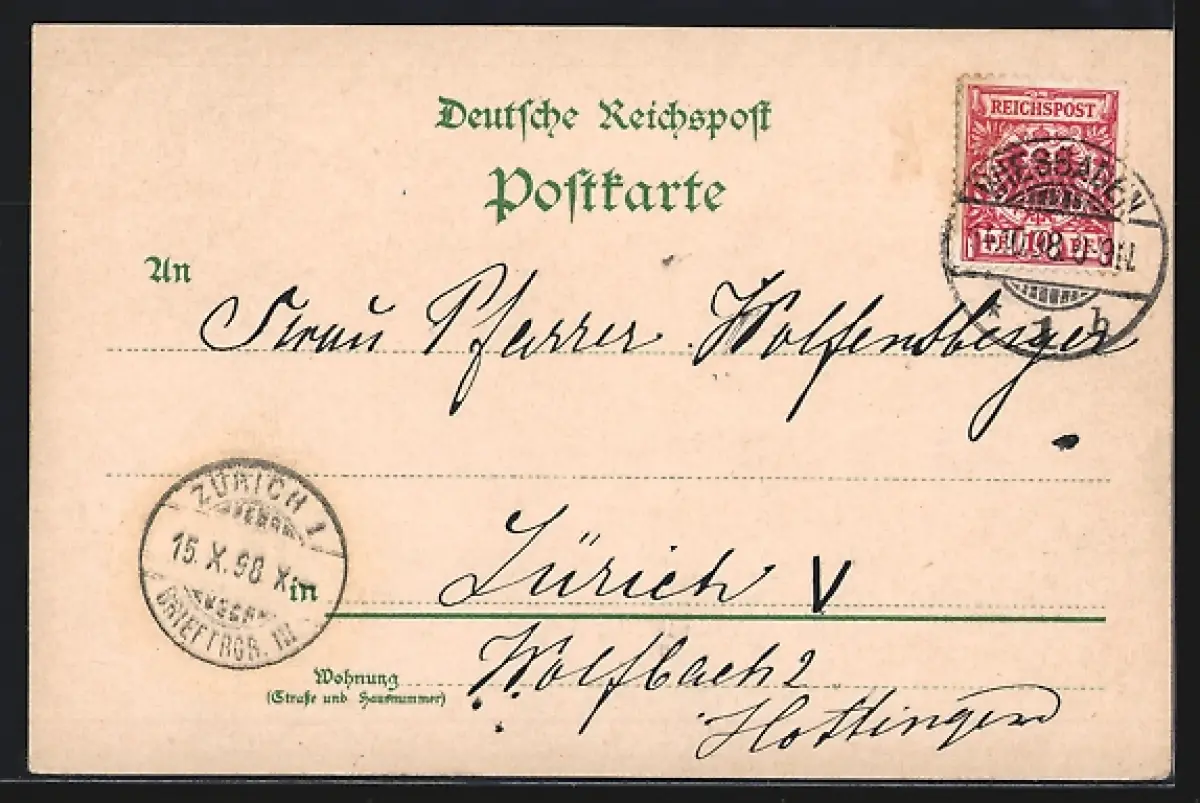 Deutsche Reichspost
Postkarte
REICHSPOST
WIESBADEN
10
An
Frau Pfarrer Wolfensberger
ZÜRICH 1
15. X. 98. X
BRIEFTRGR. III
in
Zürich V
Wohnung
(Straße und Hausnummer)
Wolfbach 2
Hottingen